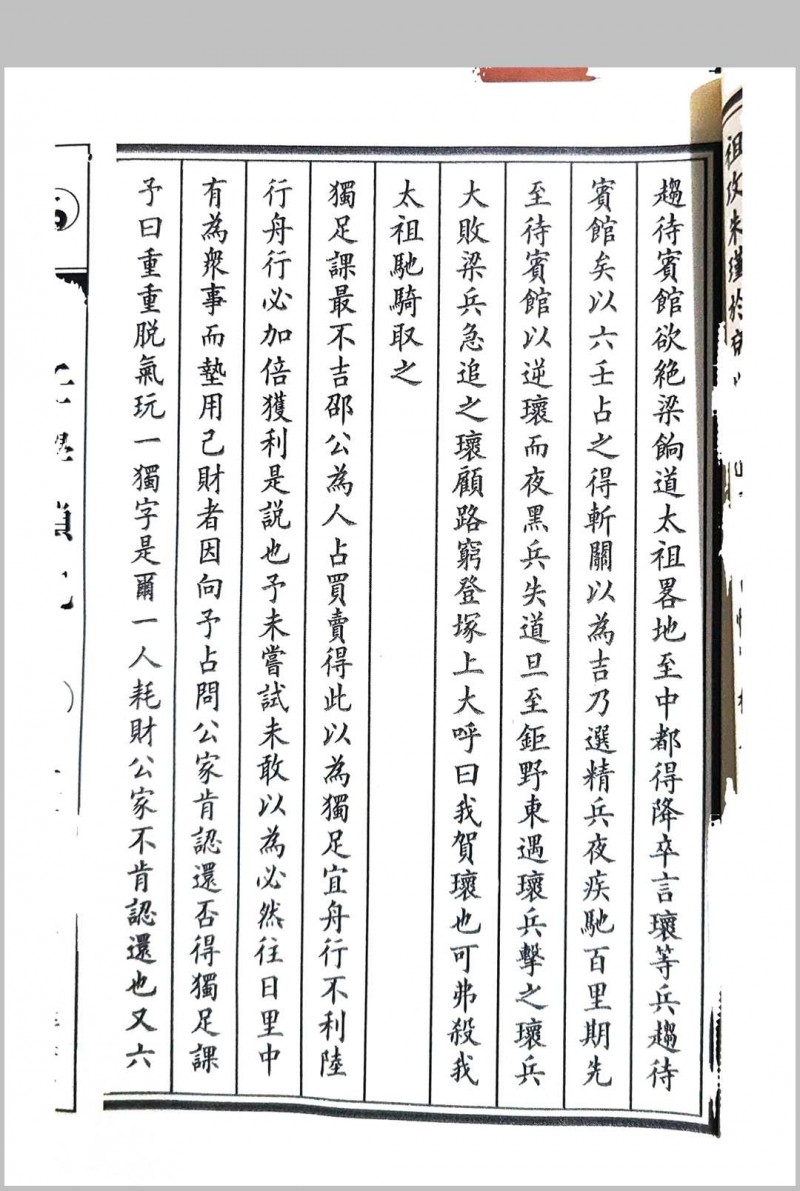 祖攻朱瑾於
趨待賓館欲絕梁餉道太祖畧地至中都得降卒言瓌等兵趨待
賓館矣以六壬占之得斬關以為吉乃選精兵夜疾馳百里期先
至待賓館以逆瓌而夜黑兵失道旦至鉅野東遇瓌兵擊之瓌兵
大敗梁兵急追之瓌顧路窮登塚上大呼曰我賀瓌也可弗殺我
太祖馳騎取之
獨足課最不吉邵公為人占買賣得此以為獨足宜舟行不利陸
行舟行必加倍獲利是說也予未嘗試未敢以為必然往日里中
有為衆事而墊用己財者因向予占問公家肯認還否得獨足課
予曰重重脫氣玩一獨字是爾一人耗財公家不肯認還也又六